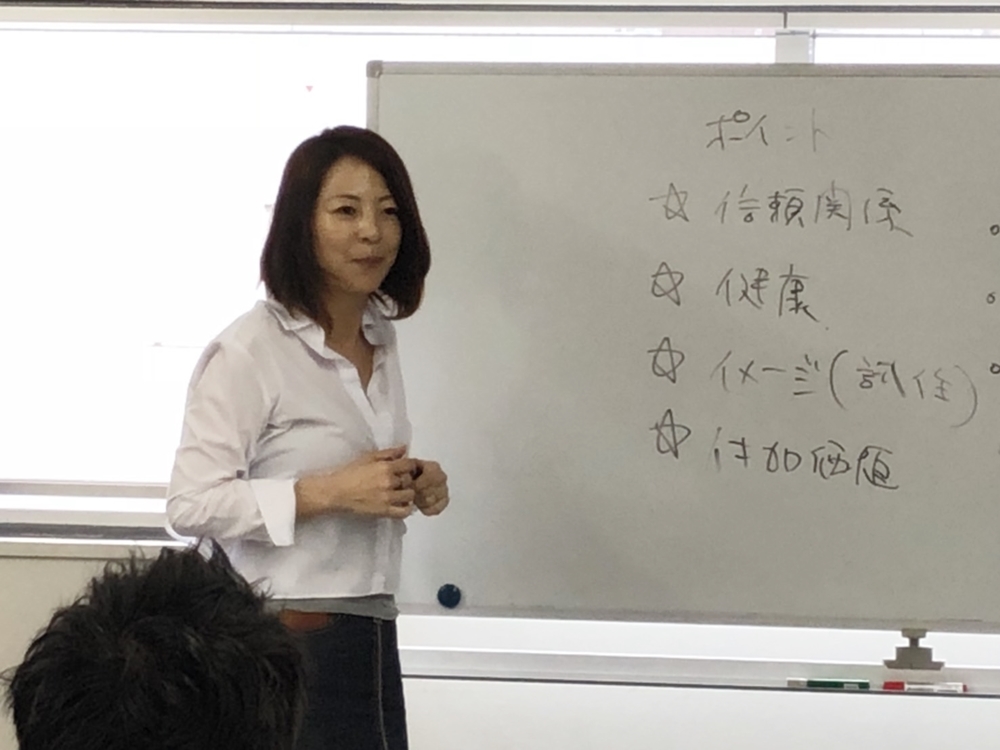 ポイント
☆ 信頼関係
☆ 健康
☆ イメージ(試住)
☆ 付加価値